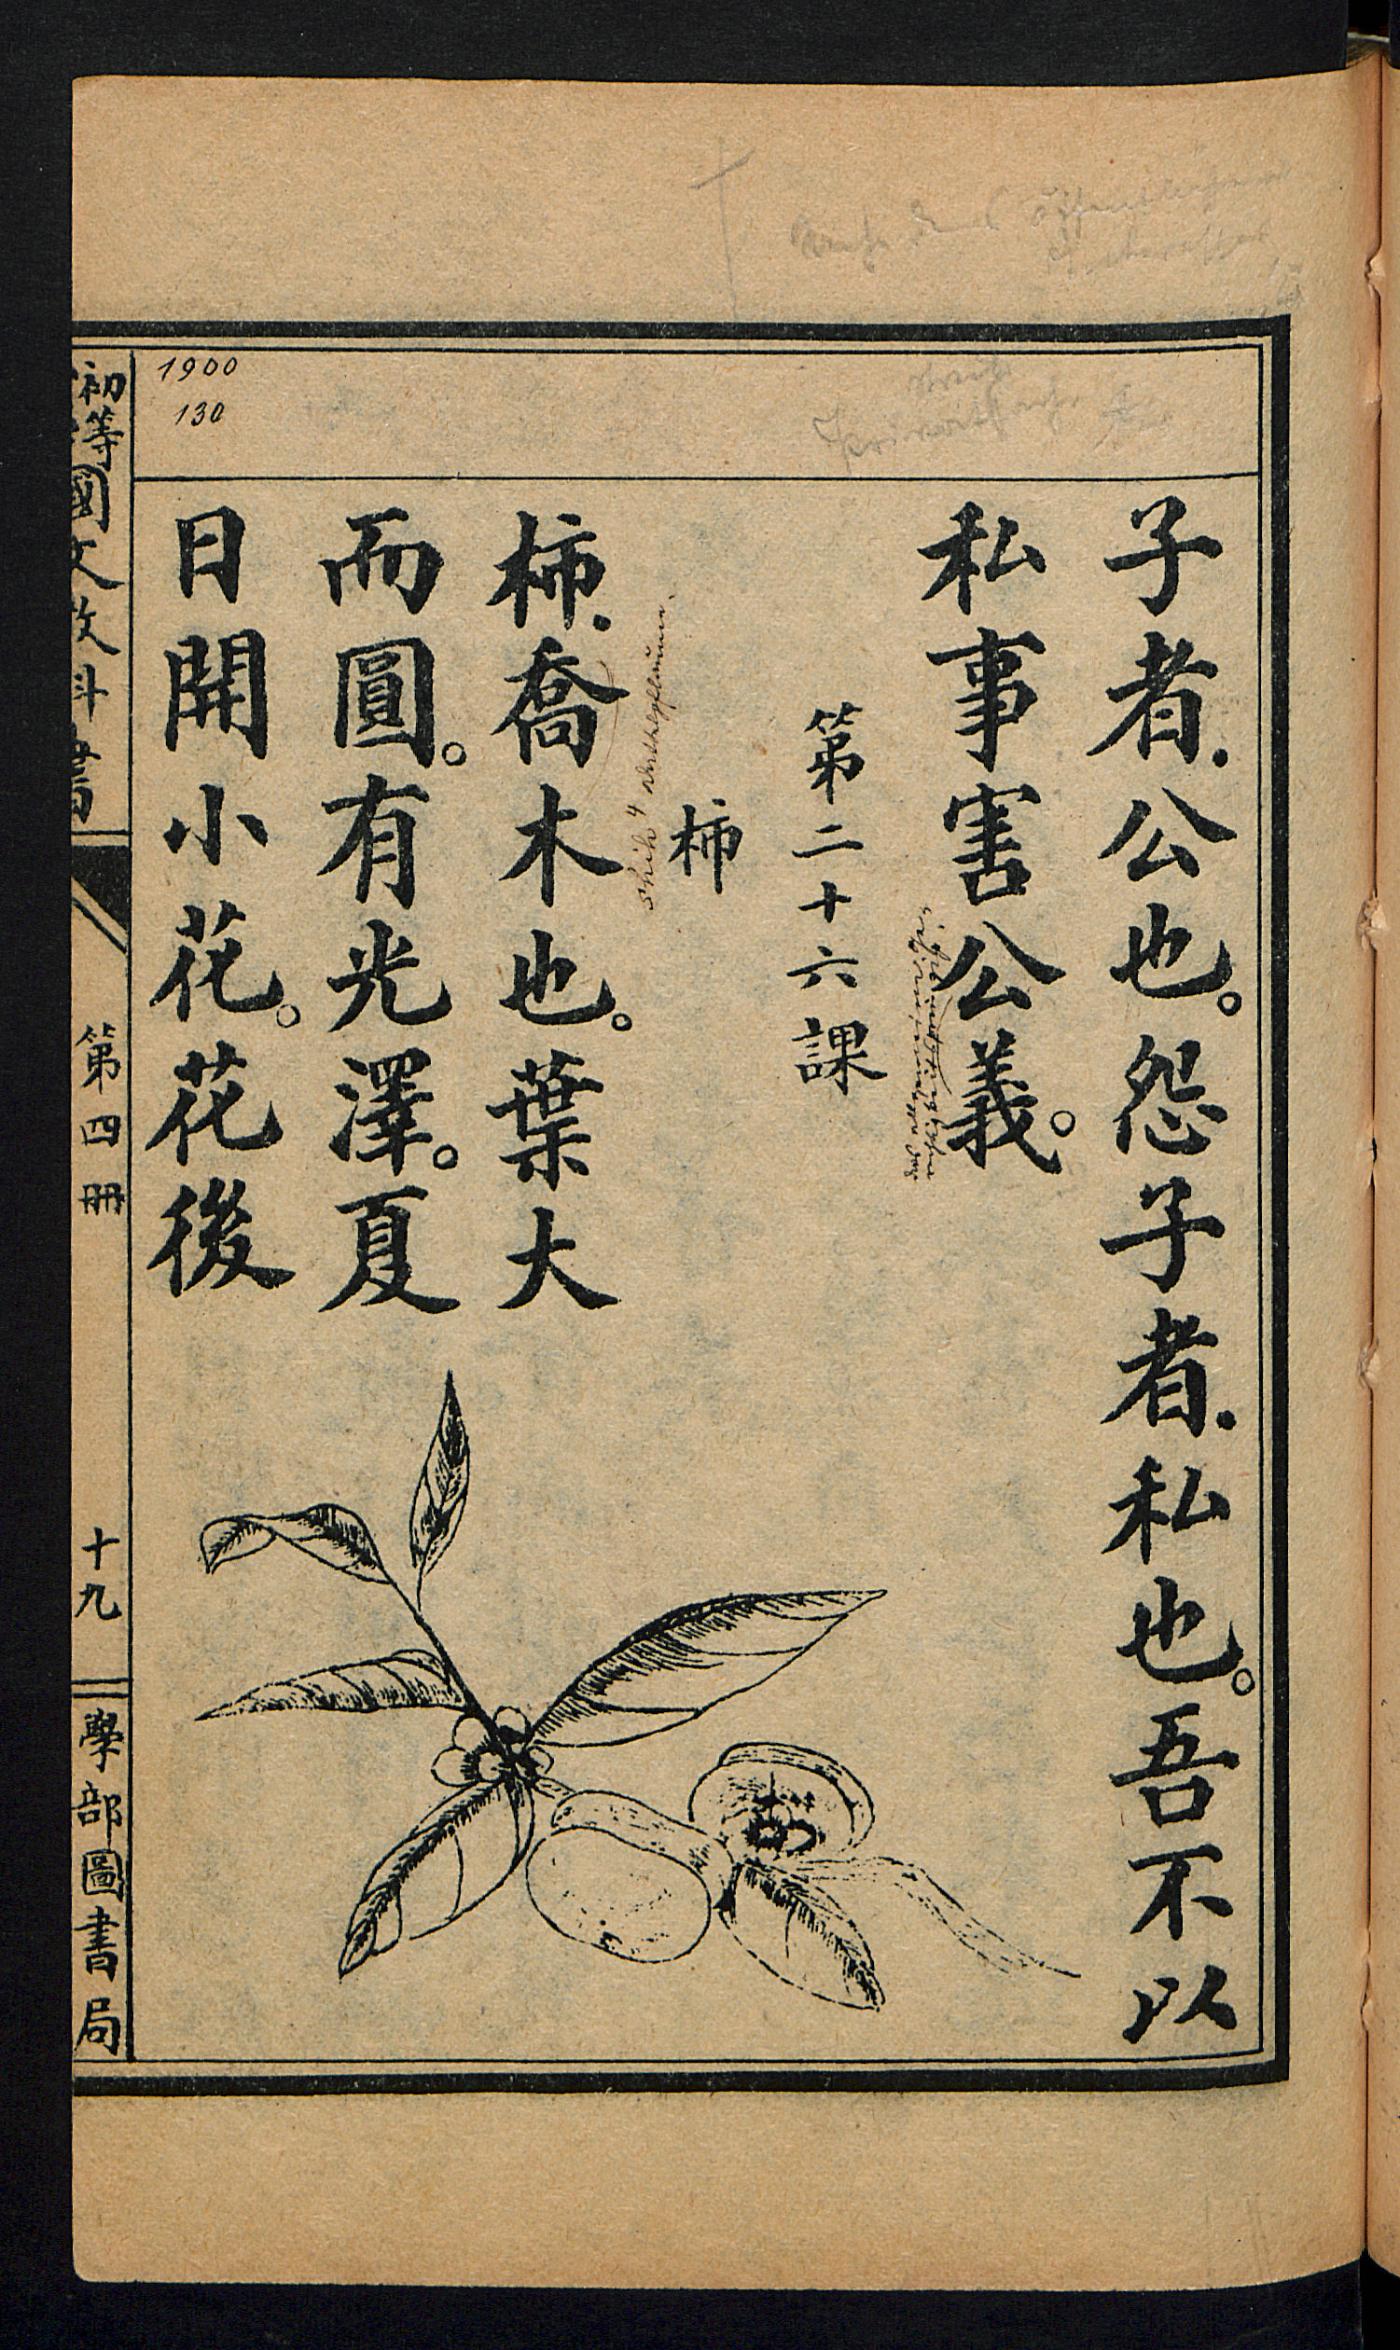 子者．公也。怨子者．私也。吾不以
私事害公義。
第二十六課
柿
shih⁴
柿．喬木也。葉大
而圓。有光澤。夏
日開小花。花後
1900
130
初等國文教科書
第四冊
十九
學部圖書局